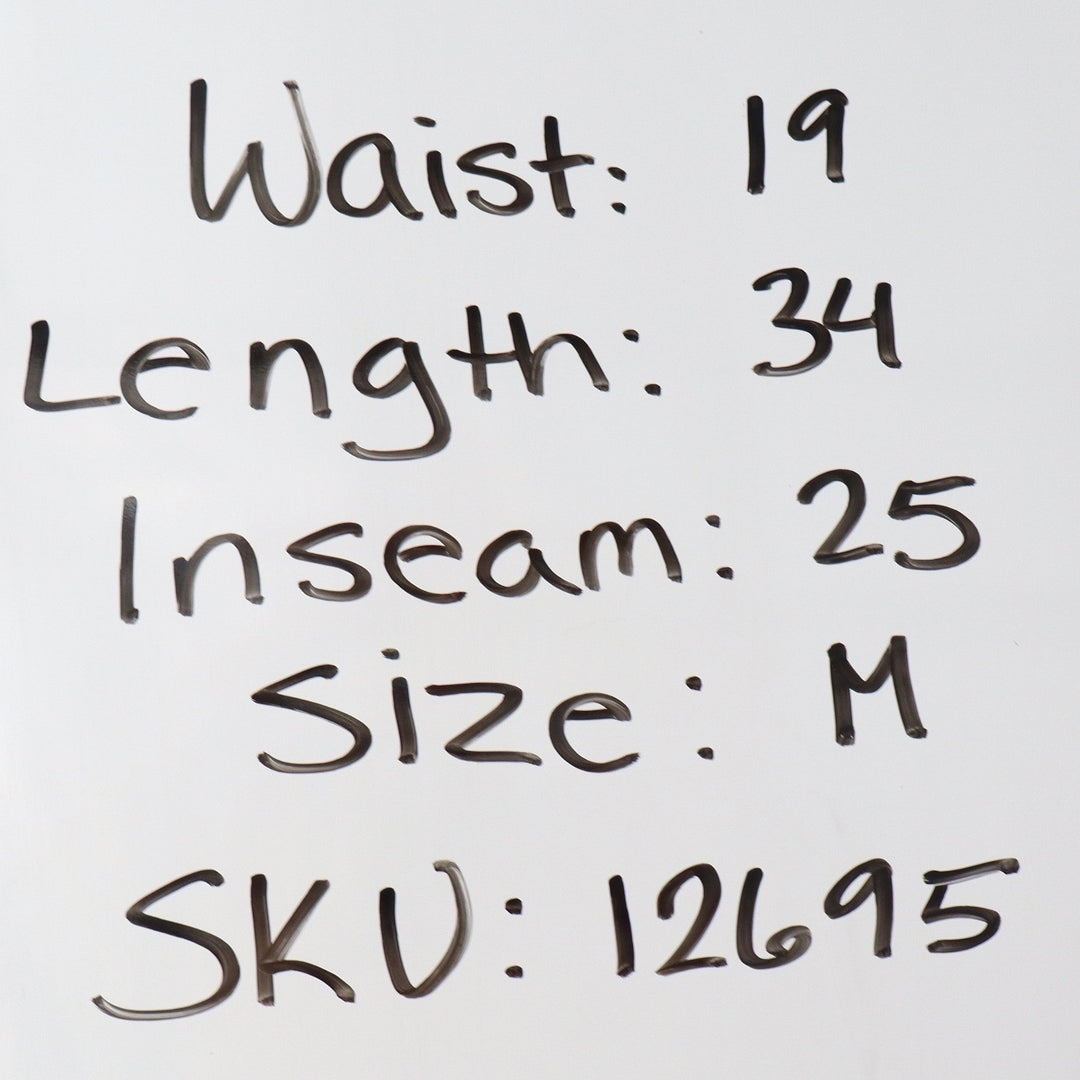 Waist: 19
Length: 34
Inseam: 25
Size: M
SKU: 12695